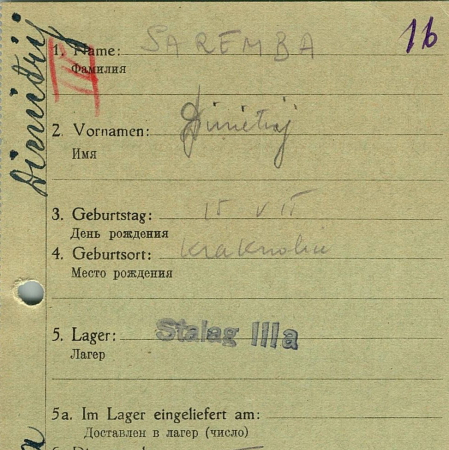 16
Dimitrij
III
1. Name: SAREMBA
Фамилия
2. Vornamen: Dimitrij
Имя
3. Geburtstag: 15 V 15
День рождения
4. Geburtsort:
Место рождения
5. Lager: Stalag IIIa
Лагер
5a. Im Lager eingeliefert am:
Доставлен в лагер (число)